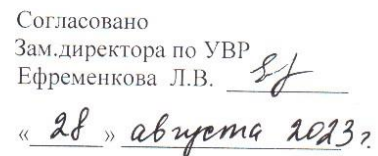 Согласовано
Зам.директора по УВР
Ефременкова Л.В.
« 28 » августа 2023 г.